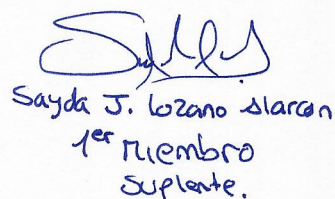 Sayda J. Lozano Alarcon
1er Miembro
Suplente.